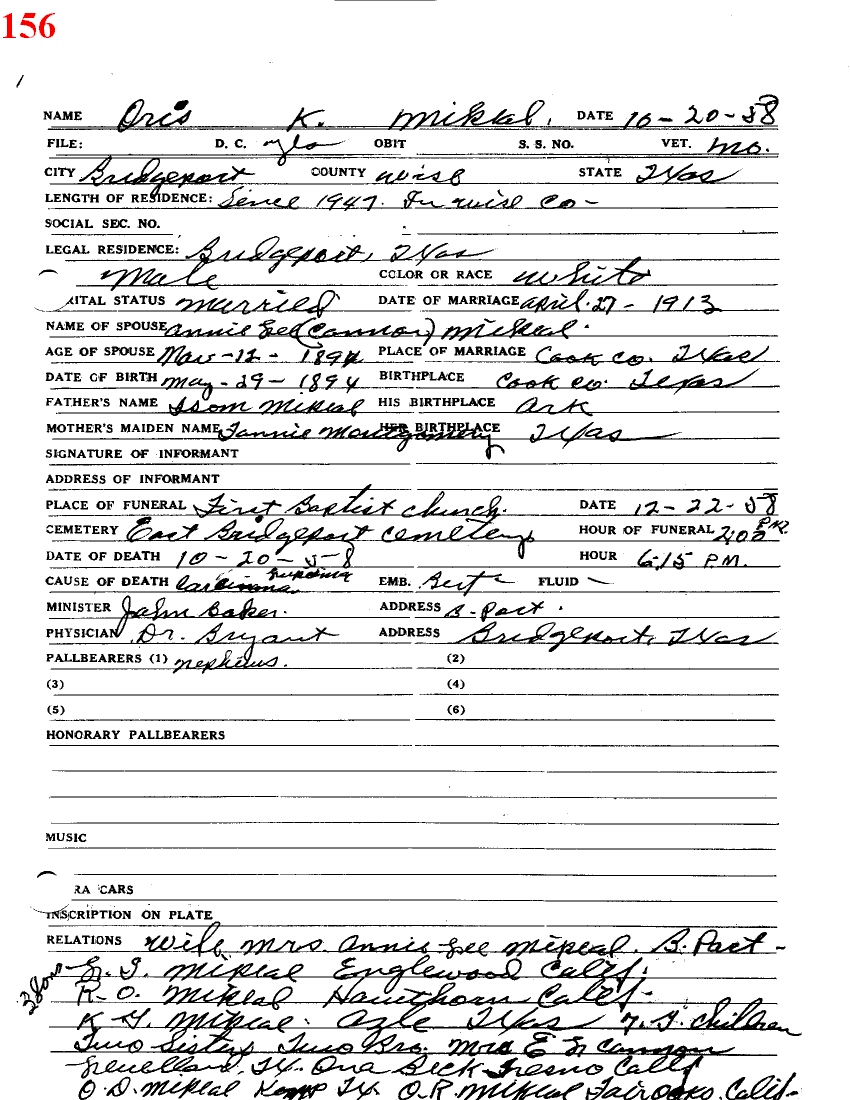 156
NAME Oris K. Mikeal. DATE 10-20-58
FILE: D. C. yes OBIT S. S. NO. VET. no.
CITY Bridgeport COUNTY Wise STATE Texas
LENGTH OF RESIDENCE: Since 1947. In Wise Co-
SOCIAL SEC. NO.
LEGAL RESIDENCE: Bridgeport, Texas
Male COLOR OR RACE White
RITAL STATUS Married DATE OF MARRIAGE April-27-1913
NAME OF SPOUSE Annie Lee (Cannon) Mikeal.
AGE OF SPOUSE Mar-12-1894 PLACE OF MARRIAGE Cook Co. Texas
DATE OF BIRTH May-29-1894 BIRTHPLACE Cook Co. Texas
FATHER'S NAME Isom Mikeal HIS BIRTHPLACE Ark
MOTHER'S MAIDEN NAME Fannie Montgomery HER BIRTHPLACE Texas
SIGNATURE OF INFORMANT
ADDRESS OF INFORMANT
PLACE OF FUNERAL First Baptist Church. DATE 12-22-58
CEMETERY East Bridgeport Cemetery HOUR OF FUNERAL 2:00 P.M.
DATE OF DEATH 10-20-58 HOUR 6:15 P.M.
CAUSE OF DEATH Carcinoma EMB. FLUID -
MINISTER John Baker. ADDRESS B-Port.
PHYSICIAN Dr. Bryant ADDRESS Bridgeport, Texas
PALLBEARERS (1) nephews. (2)
(3) (4)
(5) (6)
HONORARY PALLBEARERS
MUSIC
RA CARS
INSCRIPTION ON PLATE
RELATIONS Wife Mrs. Annie Lee Mikeal. B. Port-
3 Sons- Mikeal Englewood Calif.
R. O. Mikeal Hawthorn Calif-
Mikeal. Azle Texas 7 G. Children
Two Sisters Two Bro. Mrs E Cannon
Levelland, Tx. Ona Beck Fresno Calif
O. D. Mikeal Kemp Tx. O. R. Mikeal Fairoaks, Calif-